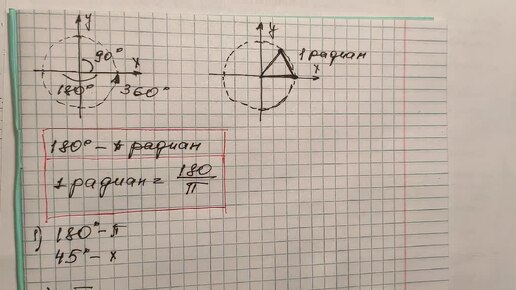 y
90°
x
180°
360°
y
1 радиан
x
180° – π радиан
1 радиан = 180/π
1) 180° – π
45° – x